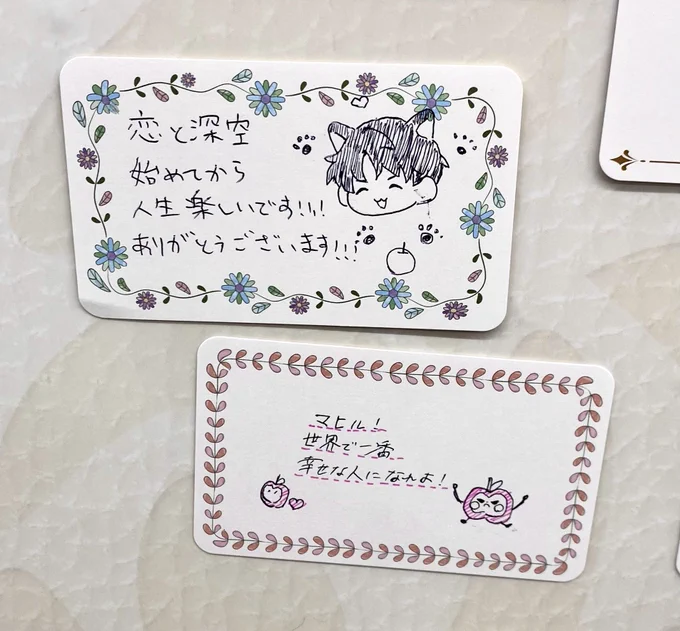 恋と深空
始めてから
人生楽しいです!!!
ありがとうございます!!!
マヒル!
世界で一番
幸せな人になれよ!